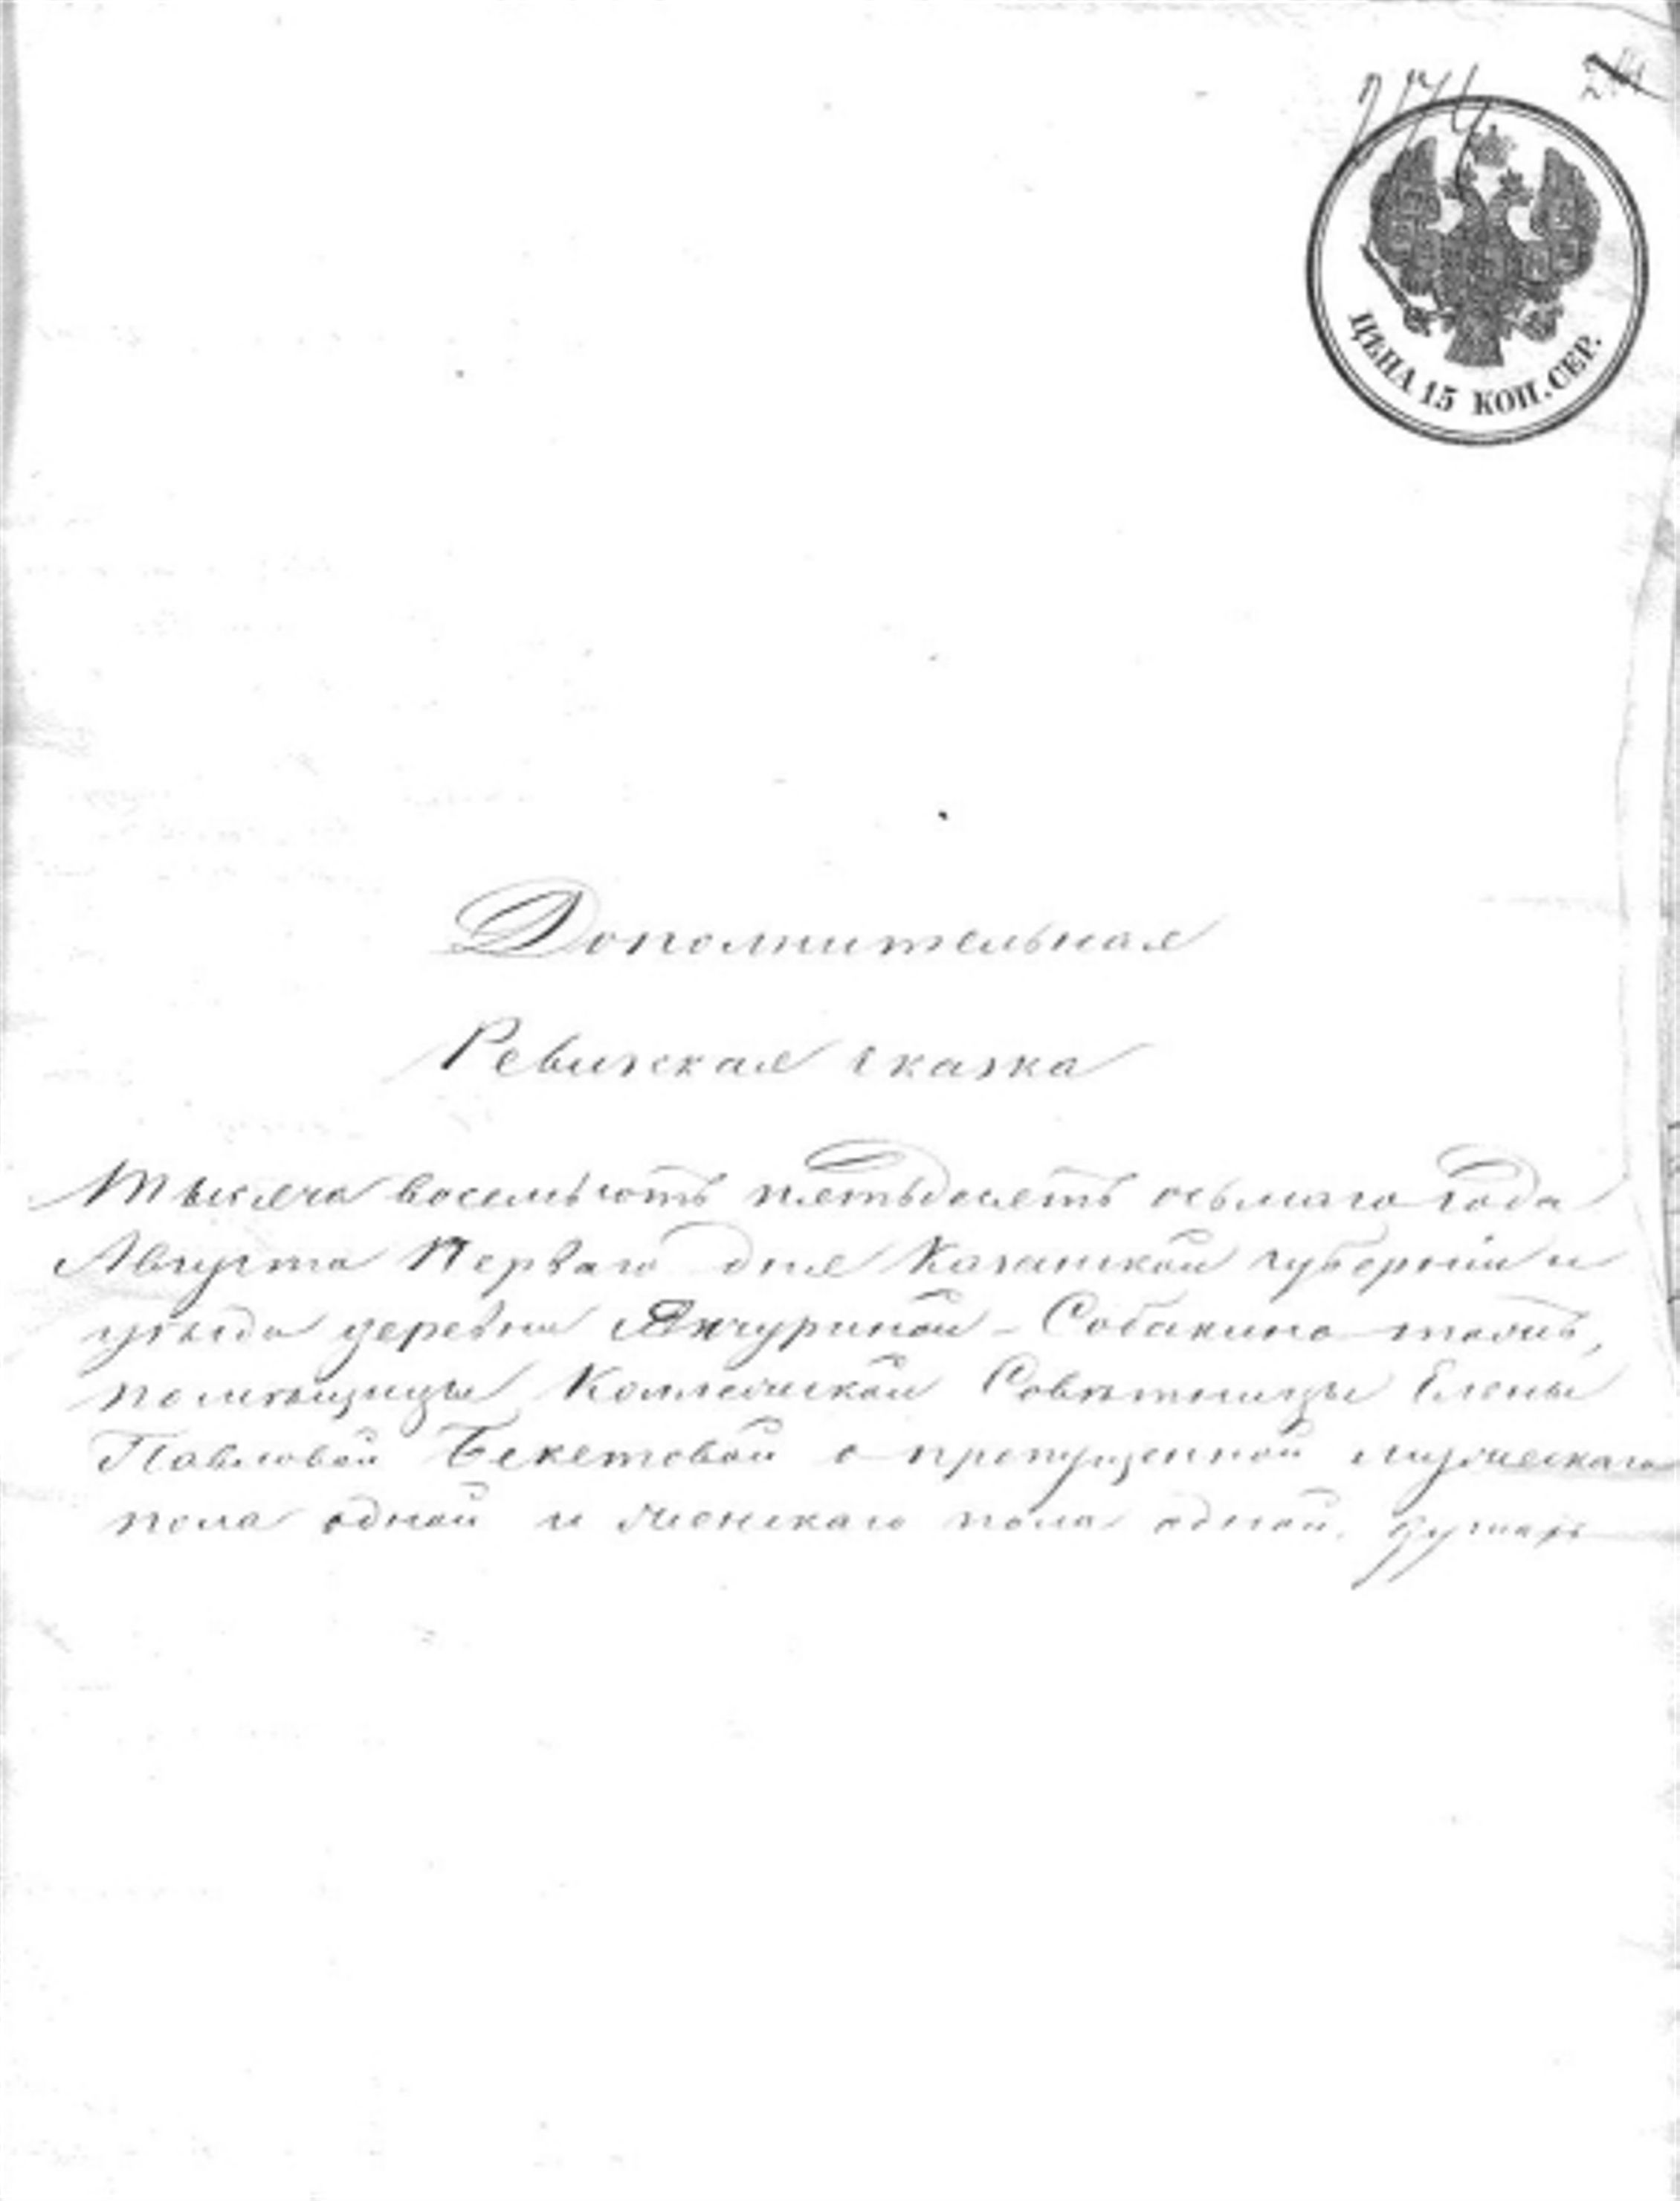 ЦѢНА 15 КОП. СЕР.
Дополнительная
Ревизская сказка
Тысяча восемьсотъ пятьдесятъ осьмаго года
Августа Перваго дня Казанской губерніи и
уѣзда деревни Янчуриной - Собакино тожъ,
помѣщицы Коллежской Совѣтницы Елены
Павловой Бекетовой о пропущенной мужескаго
пола одной и женскаго пола одной душахъ